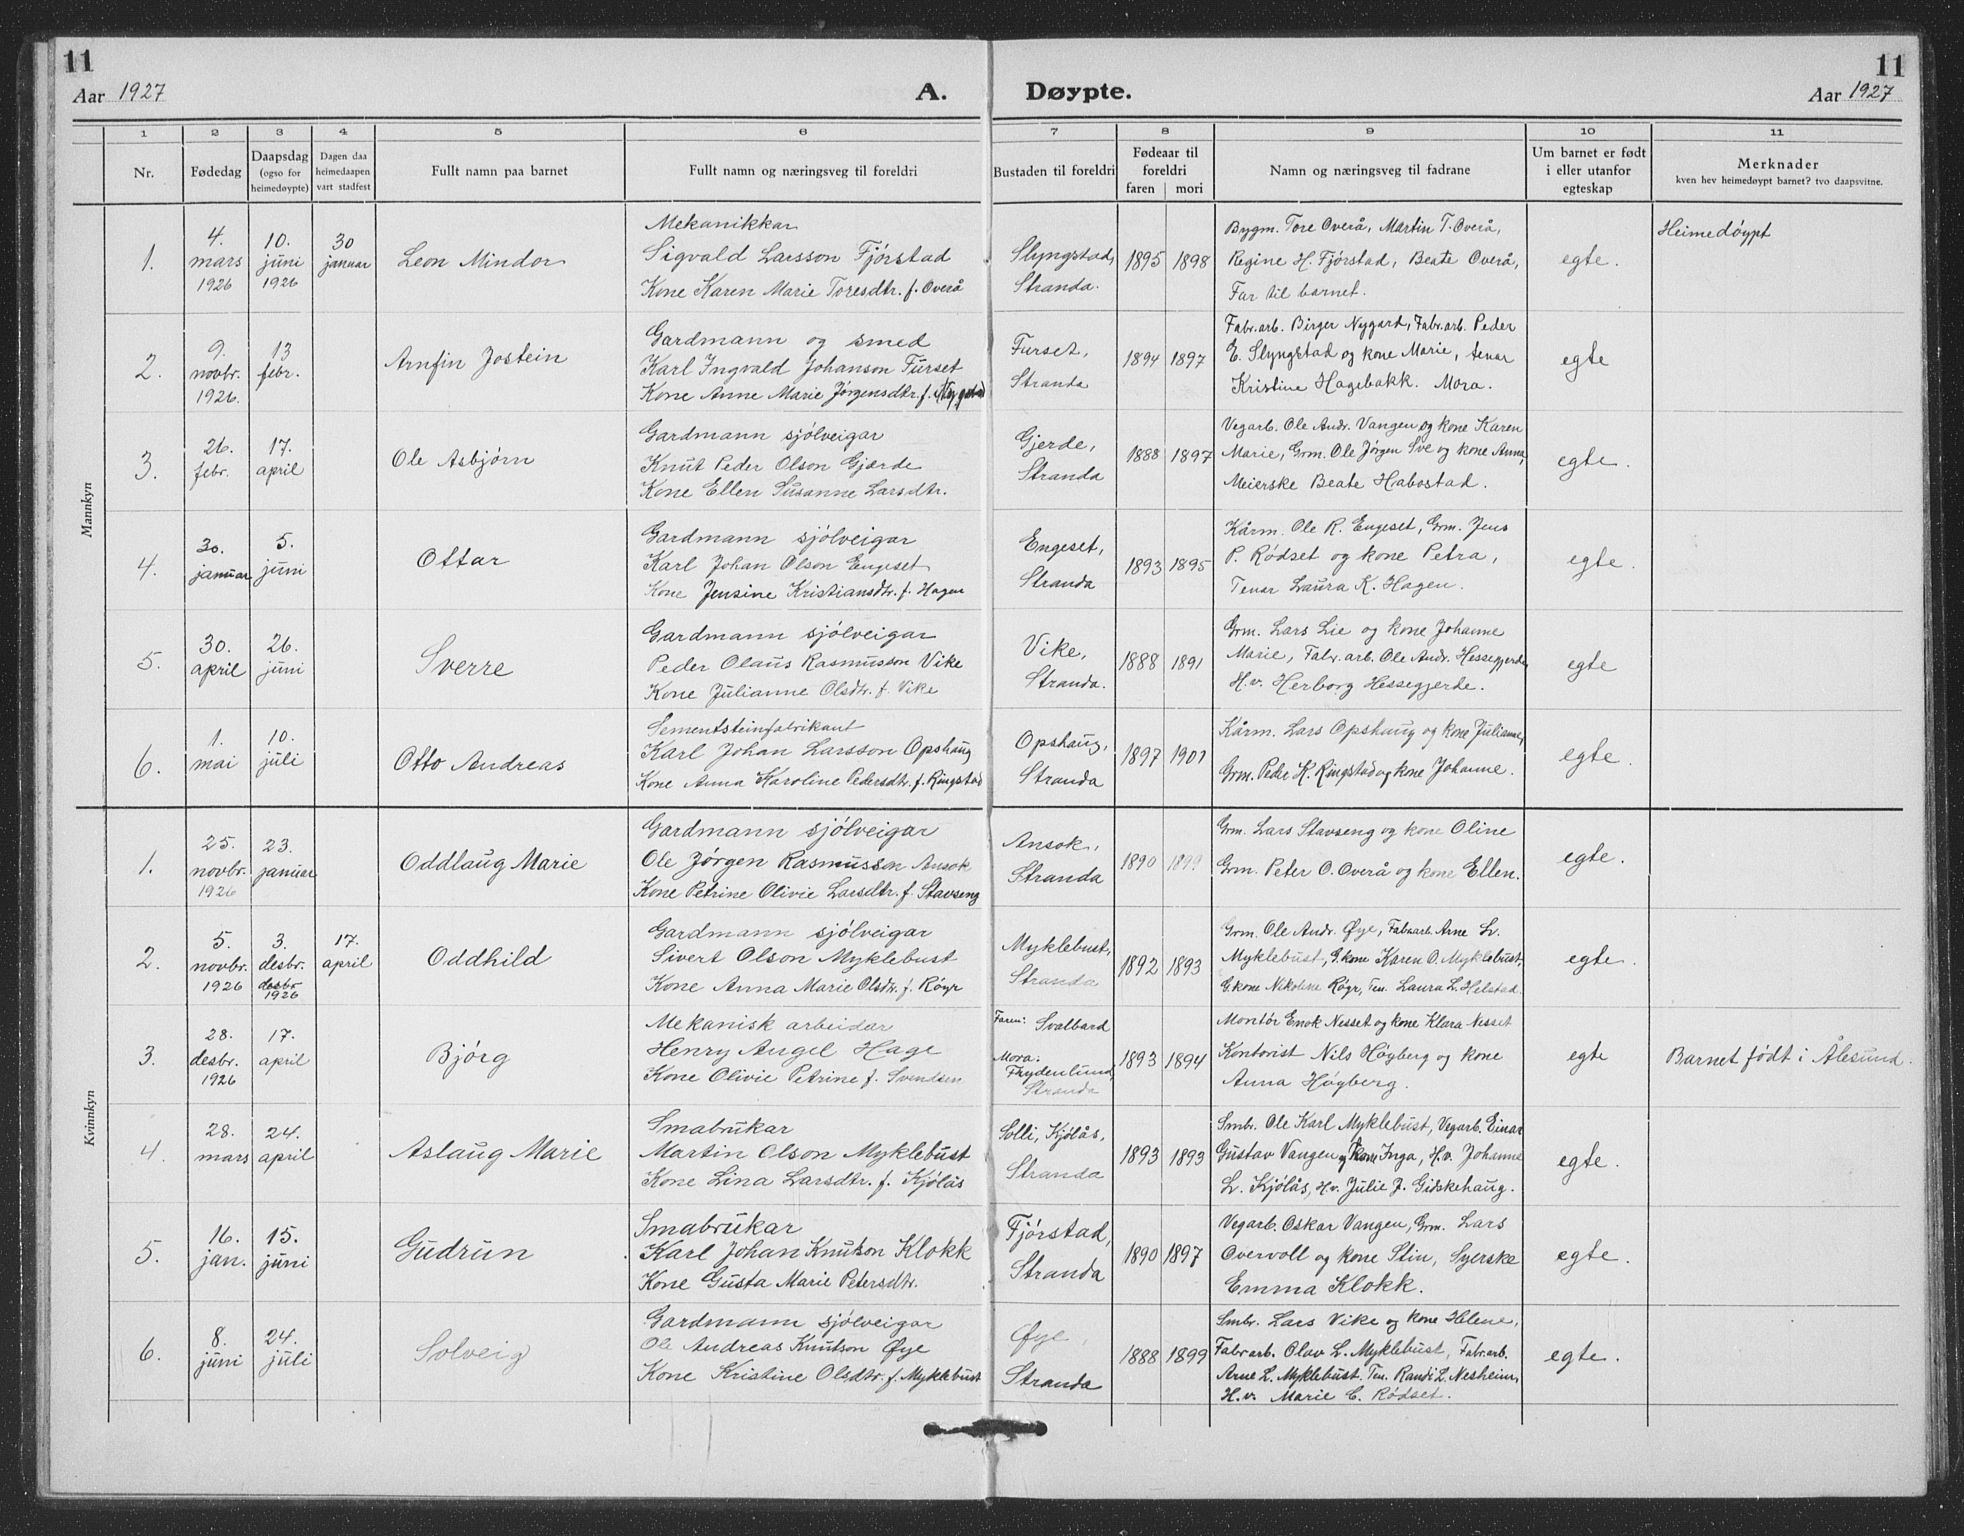 11
11
Aar 1927
A.
Døypte.
Aar 1927
1
2
3
4
5
6
7
8
9
10
11
Nr.
Fødedag
Daapsdag
(ogso for
heimedøypte)
Dagen daa
heimedaapen
vart stadfest
Fullt namn paa barnet
Fullt namn og næringsveg til foreldri
Bustaden til foreldri
Fødeaar til
foreldri
faren
mori
Namn og næringsveg til fadrane
Um barnet er født
i eller utanfor
egteskap
Merknader
kven hev heimedøypt barnet? tvo daapsvitne.
Mannkyn
1.
4.
mars
1926
10.
juni
1926
30
januar
Leon Mindor
Mekanikkar
Sigvald Larsson Fjørstad
Kone Karen Marie Toresdtr. f. Overå
Slyngstad,
Stranda.
1895
1898
Bygm. Tore Overå, Martin T. Overå,
Regine H. Fjørstad, Beate Overå,
Far til barnet.
egte.
Heimedøypt
2.
9.
novbr.
1926.
13
febr.
Arnfin Jostein
Gardmann og smed
Karl Ingvald Johanson Furset
Kone Anne Marie Jørgensdtr. f.
Furset,
Stranda
1894
1897
Fabr.arb. Birger Nygard, Fabr.arb. Peder
E. Slyngstad og kone Marie, tenar
Kristine Hagebakk. Mora.
egte
3.
26.
febr.
17.
april
Ole Asbjørn
Gardmann sjølveigar
Knut Peder Olson Gjærde
Kone Ellen Susanne Larsdtr.
Gjerde,
Stranda
1888
1897
Vegarb. Ole Andr. Vangen og kone Karen
Marie, Grm. Ole Jørgen Sve og kone Anna,
Meierske Beate Habostad.
egte.
4.
30.
januar
5.
juni
Ottar
Gardmann sjølveigar
Karl Johan Olson Engeset
Kone Jensine Kristiansdtr. f. Hagen
Engeset,
Stranda
1893
1895
Kårm. Ole R. Engeset, Grm. Jens
P. Rødset og kone Petra,
Tenar Laura K. Hagen.
egte.
5.
30.
april
26.
juni
Sverre
Gardmann sjølveigar
Peder Olaus Rasmusson Vike
Kone Julianne Olsdtr. f. Vike
Vike,
Stranda.
1888
1891
Grm. Lars Lie og kone Johanne
Marie, Fabr.arb. Ole Andr. Hessegjerde
H.v. Herborg Hessegjerde.
egte
6.
1.
mai
10.
juli
Otto Andreas
Sementsteinfabrikant
Karl Johan Larsson Opshaug
Kone Anna Karoline Pedersdtr. f. Ringstad
Opshaug,
Stranda
1897
1901
Kårm. Lars Opshaug og kone Julianne,
Grm. Peder K. Ringstad og kone Johanne.
egte.
Kvinnkyn
1.
25.
novbr.
1926
23.
januar
Oddlaug Marie
Gardmann sjølveigar
Ole Jørgen Rasmusson Ansok
Kone Petrine Olivie Larsdtr. f. Stavseng
Ansok,
Stranda
1890
1899
Grm. Lars Stavseng og kone Oline
Grm. Peter O. Overå og kone Ellen.
egte.
2.
5.
novbr.
1926
3.
desbr.
desbr
1926
17.
april
Oddhild
Gardmann sjølveigar
Sivert Olson Myklebust
Kone Anna Marie Olsdtr. f. Røyr
Myklebust,
Stranda
1892
1893
Grm. Ole Andr. Øye, Fabr.arb. Arne L.
Myklebust, G.kone Karen O. Myklebust,
G.kone Nikoline Røyr, Ten. Laura L. Helstad.
egte.
3.
28.
desbr.
1926
17.
april
Bjørg
Mekanisk arbeidar
Henry Angel Hage
Kone Olivie Petrine f. Svendsen
Faren: Svalbard
Mora:
Frydenlund,
Stranda
1893
1894
Montør Enok Nesset og kone Klara Nesset
Kontorist Nils Høgberg og kone
Anna Høgberg.
egte
Barnet født i Ålesund.
4.
28.
mars
24.
april
Aslaug Marie
Smabrukar
Martin Olson Myklebust
Kone Lina Larsdtr. f. Kjølås
Solli, Kjølås,
Stranda
1893
1893
Smbr. Ole Karl Myklebust, Vegarb. Einar
Gustav Vangen og kone Inga, H.v. Johanne
L. Kjølås, H.v. Julie J. Gidskehaug.
egte.
5.
16.
jan.
15.
juni
Gudrun
Smabrukar
Karl Johan Knutson Klokk
Kone Gusta Marie Petersdtr.
Fjørstad,
Stranda
1890
1897
Vegarb. Oskar Vangen, Grm. Lars
Overvoll og kone Stin, Syerske
Emma Klokk.
egte.
6.
8.
juni
24.
juli
Solveig
Gardmann sjølveigar
Ole Andreas Knutson Øye
Kone Kristine Olsdtr. f. Myklebust
Øye,
Stranda
1888
1899
Smbr. Lars Vike og kone Helene,
Fabr.arb. Olav L. Myklebust, Fabr.arb.
Arne L. Myklebust. Ten. Randi L. Nesheim,
H.v. Marie C. Rødset.
egte.